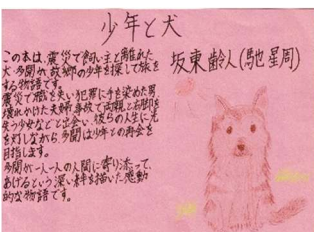 少年と犬
坂東齢人(馳星周)
この本は、震災で飼い主と離れた
犬・多聞が、故郷の少年を探して旅を
する物語です。
震災で職を失い犯罪に手を染めた男
壊れかけた夫婦、事故で両親と右脚を
失う少女などと出会い、彼らの人生に光
を灯しながら、多聞は少年との再会を
目指します。
多聞が一人一人の人間に寄り添って、
あげるという深い絆を描いた感動
的な物語です。